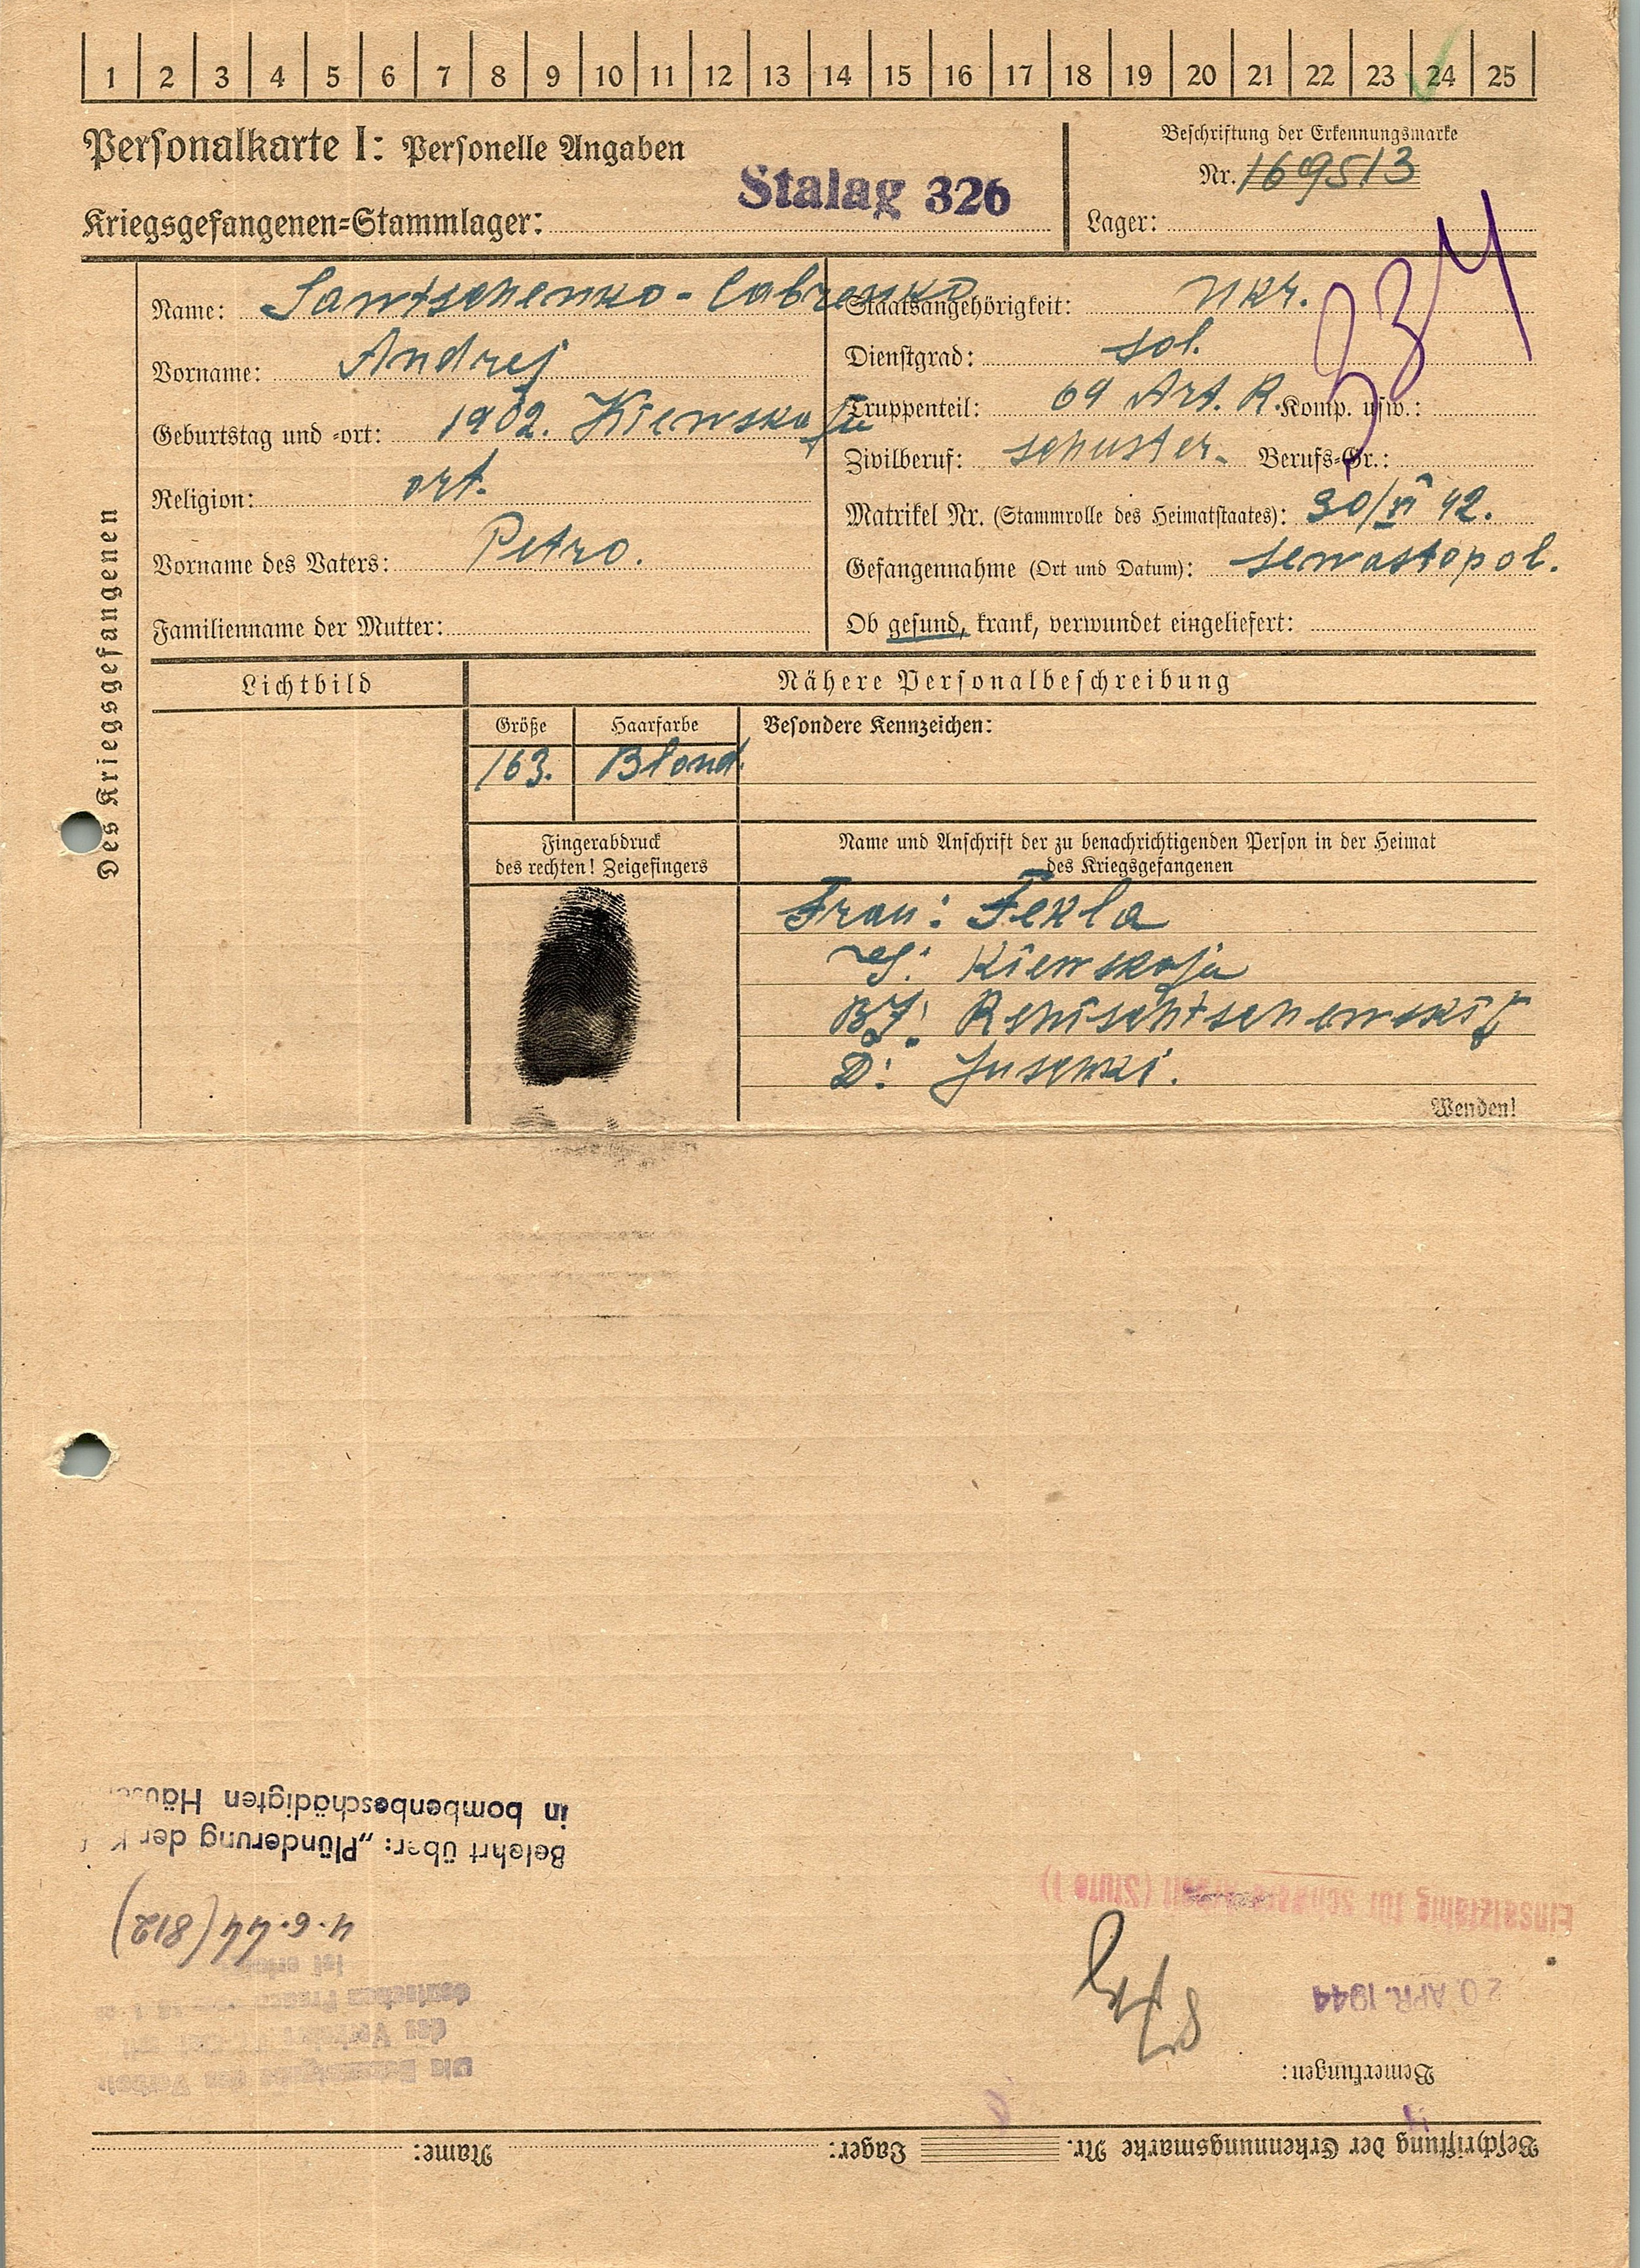 1 2 3 4 5 6 7 8 9 10 11 12 13 14 15 16 17 18 19 20 21 22 23 24 25
Personalkarte I: Personelle Angaben
Stalag 326
Kriegsgefangenen=Stammlager:
Beschriftung der Erkennungsmarke
Nr. 169513
Lager:
334
Des Kriegsgefangenen
Name: Santschenko - Labrenko
Vorname: Andrej
Geburtstag und -ort: 1902. Kiewskaja
Religion: ort.
Vorname des Vaters: Petro.
Familienname der Mutter:
Staatsangehörigkeit: Ukr.
Dienstgrad: Sol.
Truppenteil: 69 Art. R. Komp. usw.:
Zivilberuf: Schuster. Berufs-Gr.:
Matrikel Nr. (Stammrolle des Heimatstaates): 30/VI 42.
Gefangennahme (Ort und Datum): Sewastopol.
Ob gesund, krank, verwundet eingeliefert:
Lichtbild
Nähere Personalbeschreibung
Größe Haarfarbe Besondere Kennzeichen:
163. Blond.
Fingerabdruck
des rechten! Zeigefingers
Name und Anschrift der zu benachrichtigenden Person in der Heimat
des Kriegsgefangenen
Frau: Fekla
Kiewskaja
D: Jusenki.
Wenden!
Beschriftung der Erkennungsmarke Nr. Lager: Name:
Bemerkungen:
20. APR. 1944
Einsatzfähig für schwere Arbeit (Stufe 1)
4.6.44 (812)
Belehrt über: „Plünderung der
in bombenbeschädigten